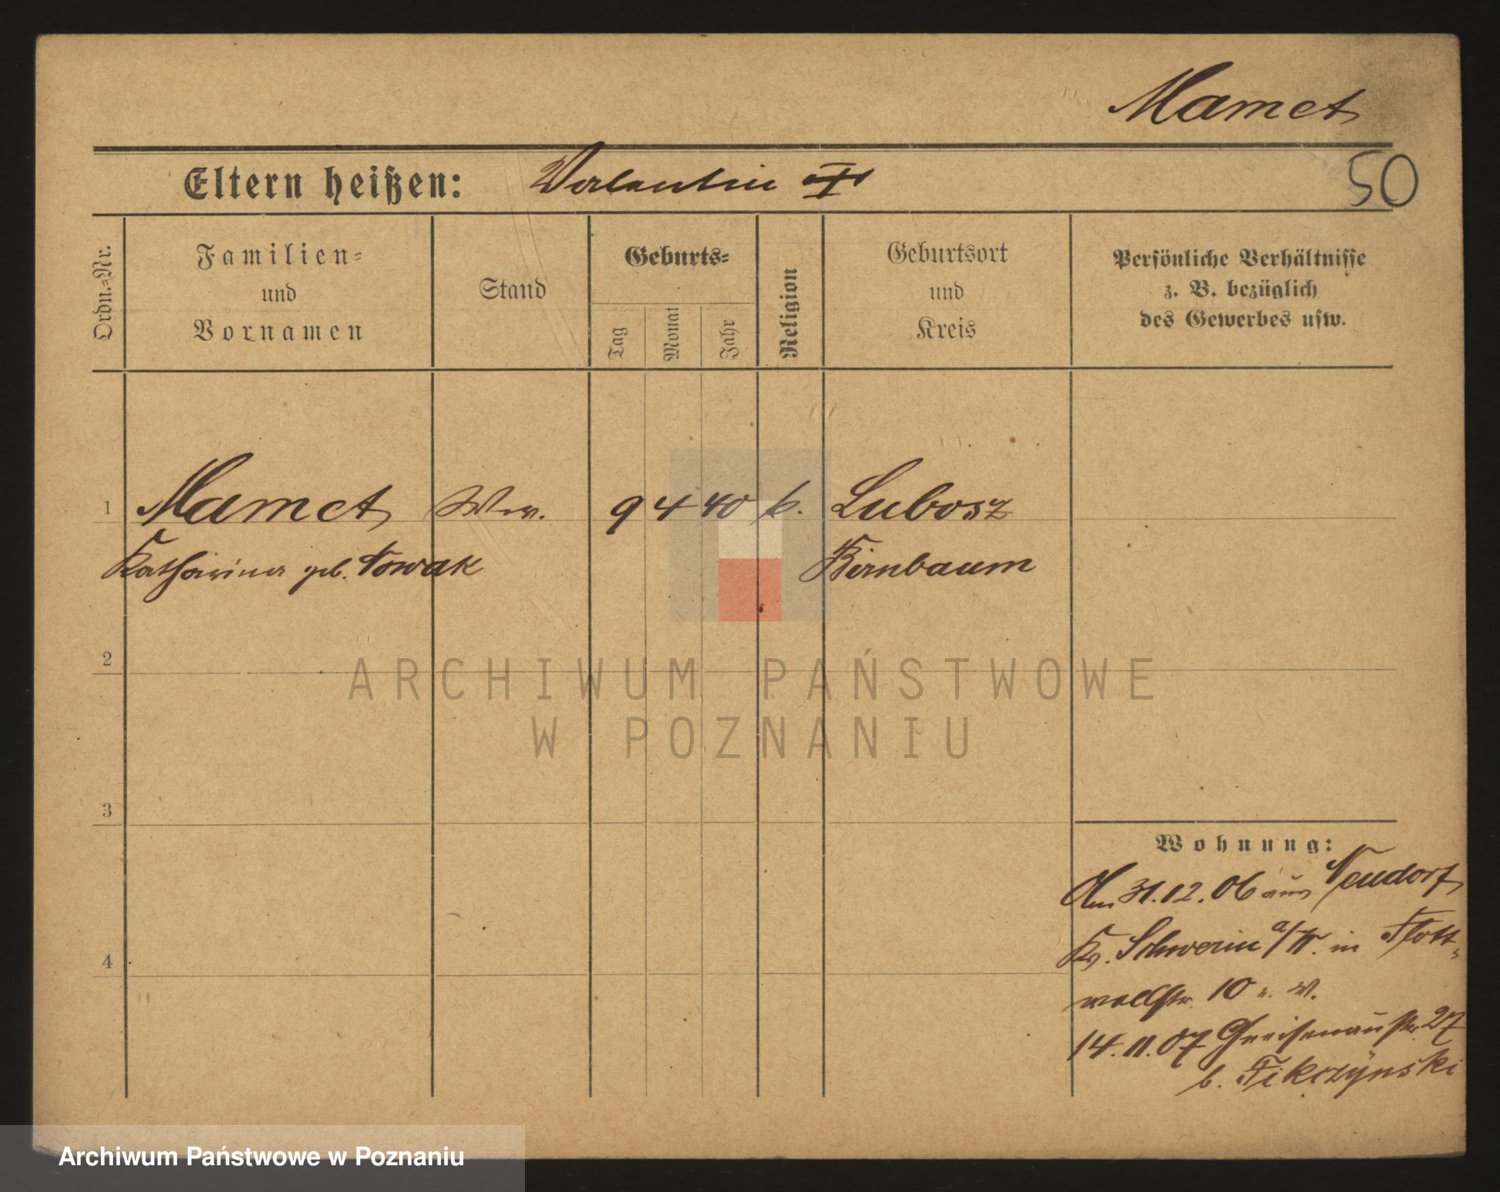 Mamet
50
Eltern heißen: Valentin
Ordn.-Nr.
Familien-
und
Vornamen
Stand
Geburts-
Tag
Monat
Jahr
Religion
Geburtsort
und
Kreis
Persönliche Verhältnisse
z. B. bezüglich
des Gewerbes usw.
1 Mamet Ww. 9 4 40 k. Lubosz
Katharina geb. Nowak Birnbaum
2
3
4
ARCHIWUM PAŃSTWOWE
W POZNANIU
Wohnung:
Am 31.12.06 aus Neudorf
Kr. Schwerin a/W. in Flott-
wellstr. 10
14.11.07 Gneisenaustr. 27
b. Fikczynski
Archiwum Państwowe w Poznaniu